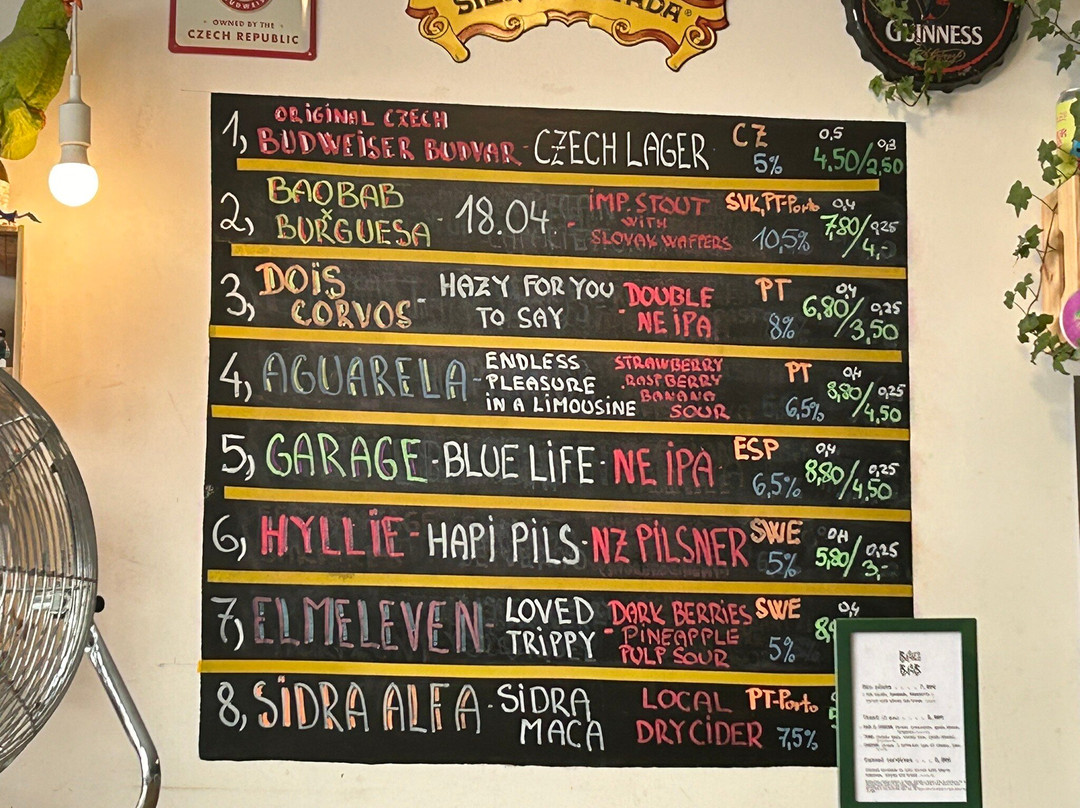 BUDWEIS
· OWNED BY THE ·
CZECH REPUBLIC
SIERRA NEVADA®
GUINNESS
1, ORiGiNAL CZECH
BUDWEiSER BUDVAR - CZECH LAGER CZ 5% 0,5 0,3
4,50/2,50
2, BAOBAB
x
BURGUESA - 18.04. - iMP. STOUT
WiTH
SLOVAK WAFFERS SVK, PT-Porto 10,5% 0,4 0,25
7,80/4,-
3, DOiS
CORVOS - HAZY FOR YOU
TO SAY - DOUBLE
NE iPA PT 8% 0,4 0,25
6,80/3,50
4, AGUARELA - ENDLESS
PLEASURE
iN A LiMOUSiNE STRAWBERRY
RASPBERRY
BANANA
SOUR PT 6,5% 0,4 0,25
8,80/4,50
5, GARAGE - BLUE LiFE - NE iPA ESP 6,5% 0,4 0,25
8,80/4,50
6, HYLLiE - HAPi PiLS - NZ PiLSNER SWE 5% 0,4 0,25
5,80/3,-
7, ELMELEVEN - LOVED
TRiPPY - DARK BERRiES
PiNEAPPLE
PULP SOUR SWE 5% 0,4
8, SiDRA ALFA - SiDRA
MACA LOCAL
DRY CiDER PT-Porto 7,5%